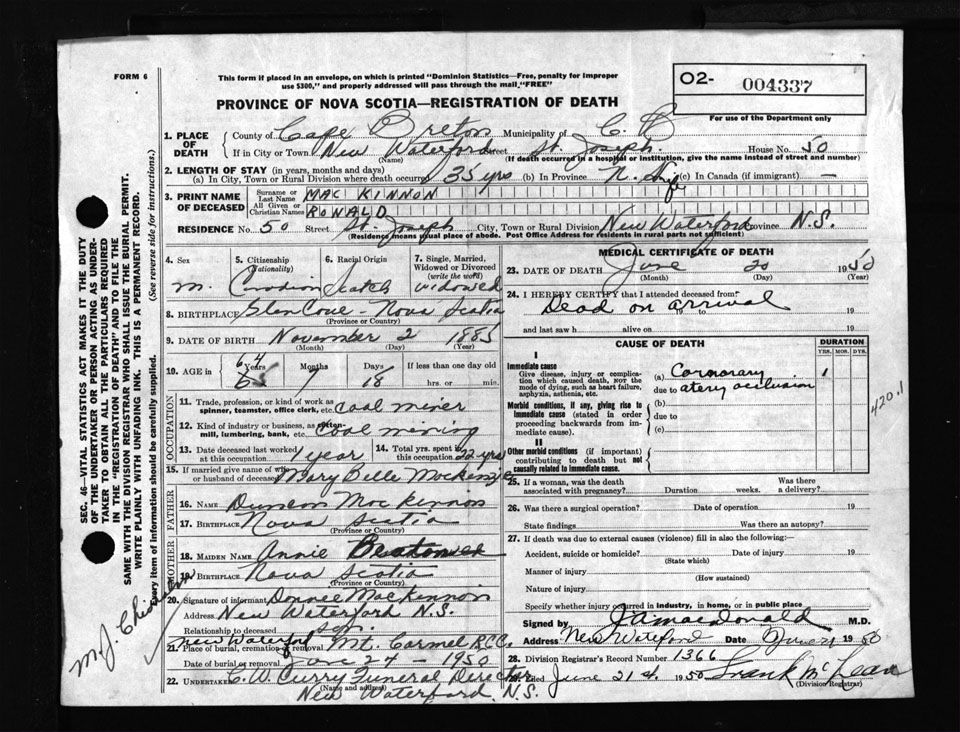 FORM 6
This form if placed in an envelope, on which is printed "Dominion Statistics—Free, penalty for improper
use $300," and properly addressed will pass through the mail "FREE"
O2- 004337
For use of the Department only
PROVINCE OF NOVA SCOTIA—REGISTRATION OF DEATH
1. PLACE OF DEATH
County of Cape Breton Municipality of C. B
If in City or Town New Waterford Street St. Joseph. House No. 50
(Name) (If death occurred in a hospital or institution, give the name instead of street and number)
2. LENGTH OF STAY (in years, months and days)
(a) In City, Town or Rural Division where death occurred 35 yrs (b) In Province N. S. life (c) In Canada (if immigrant) —
3. PRINT NAME OF DECEASED
Surname or Last Name MAC KINNON
All Given or Christian Names RONALD
RESIDENCE No. 50 Street St. Joseph City, Town or Rural Division New Waterford Province N.S.
(Residence means usual place of abode. Post Office Address for residents in rural parts not sufficient)
4. Sex
5. Citizenship (Nationality)
6. Racial Origin
7. Single, Married, Widowed or Divorced (write the word)
m. Canadian Scotch widowed
8. BIRTHPLACE Glen Cove - Nova Scotia
(Province or Country)
9. DATE OF BIRTH November 2 1885
(Month) (Day) (Year)
10. AGE in
Years Months Days If less than one day old
64 7 18 hrs. or min.
OCCUPATION
11. Trade, profession, or kind of work as
spinner, teamster, office clerk, etc. Coal miner
12. Kind of industry or business, as cotton-
mill, lumbering, bank, etc. Coal mining
13. Date deceased last worked
at this occupation 1 year
14. Total yrs. spent in
this occupation 22 yrs
15. If married give name of wife
or husband of deceased Mary Belle Mackenzie
FATHER
16. NAME Duncan MacKinnon
17. BIRTHPLACE Nova Scotia
(Province or Country)
MOTHER
18. MAIDEN NAME Annie
19. BIRTHPLACE Nova Scotia
(Province or Country)
20. Signature of informant Donnee Mackinnon
Address New Waterford N.S.
Relationship to deceased son.
New Waterford
21. Place of burial, cremation or removal Mt. Carmel R.C.C.
Date of burial or removal June 24 — 1950
22. UNDERTAKER C.W. Curry Funeral Director
(Name and address) New Waterford N.S.
MEDICAL CERTIFICATE OF DEATH
23. DATE OF DEATH June 20 1950
(Month) (Day) (Year)
24. I HEREBY CERTIFY that I attended deceased from:
Dead on arrival 19 to 19
and last saw h alive on 19
CAUSE OF DEATH
DURATION
YRS. MOS. DYS.
I
Immediate cause
Give disease, injury or complica-
tion which caused death, NOT the
mode of dying, such as heart failure,
asphyxia, asthenia, etc.
(a) Cornorary 1
due to atery occlusion
Morbid conditions, if any, giving rise to
immediate cause (stated in order
proceeding backwards from im-
mediate cause).
(b)
due to
(c)
II
Other morbid conditions (if important)
contributing to death but not
causally related to immediate cause.
420.1
25. If a woman, was the death
associated with pregnancy? Duration weeks. Was there
a delivery?
26. Was there a surgical operation? Date of operation 19
State findings Was there an autopsy?
27. If death was due to external causes (violence) fill in also the following:—
Accident, suicide or homicide? Date of injury 19
(State which)
Manner of injury
(How sustained)
Nature of injury
Specify whether injury occurred in industry, in home, or in public place
Signed by J.A. MacDonald M.D.
Address New Waterford Date June 21 1950
28. Division Registrar's Record Number 1366
Filed June 21st. 1950 Frank McLean
(Division Registrar)
SEC. 46—VITAL STATISTICS ACT MAKES IT THE DUTY
OF THE UNDERTAKER OR PERSON ACTING AS UNDER-
TAKER TO OBTAIN ALL THE PARTICULARS REQUIRED
IN THE "REGISTRATION OF DEATH" AND TO FILE THE
SAME WITH THE DIVISION REGISTRAR WHO SHALL ISSUE THE BURIAL PERMIT.
WRITE PLAINLY WITH UNFADING INK. THIS IS A PERMANENT RECORD.
Every item of information should be carefully supplied. (See reverse side for instructions.)
M. J. Chiasson